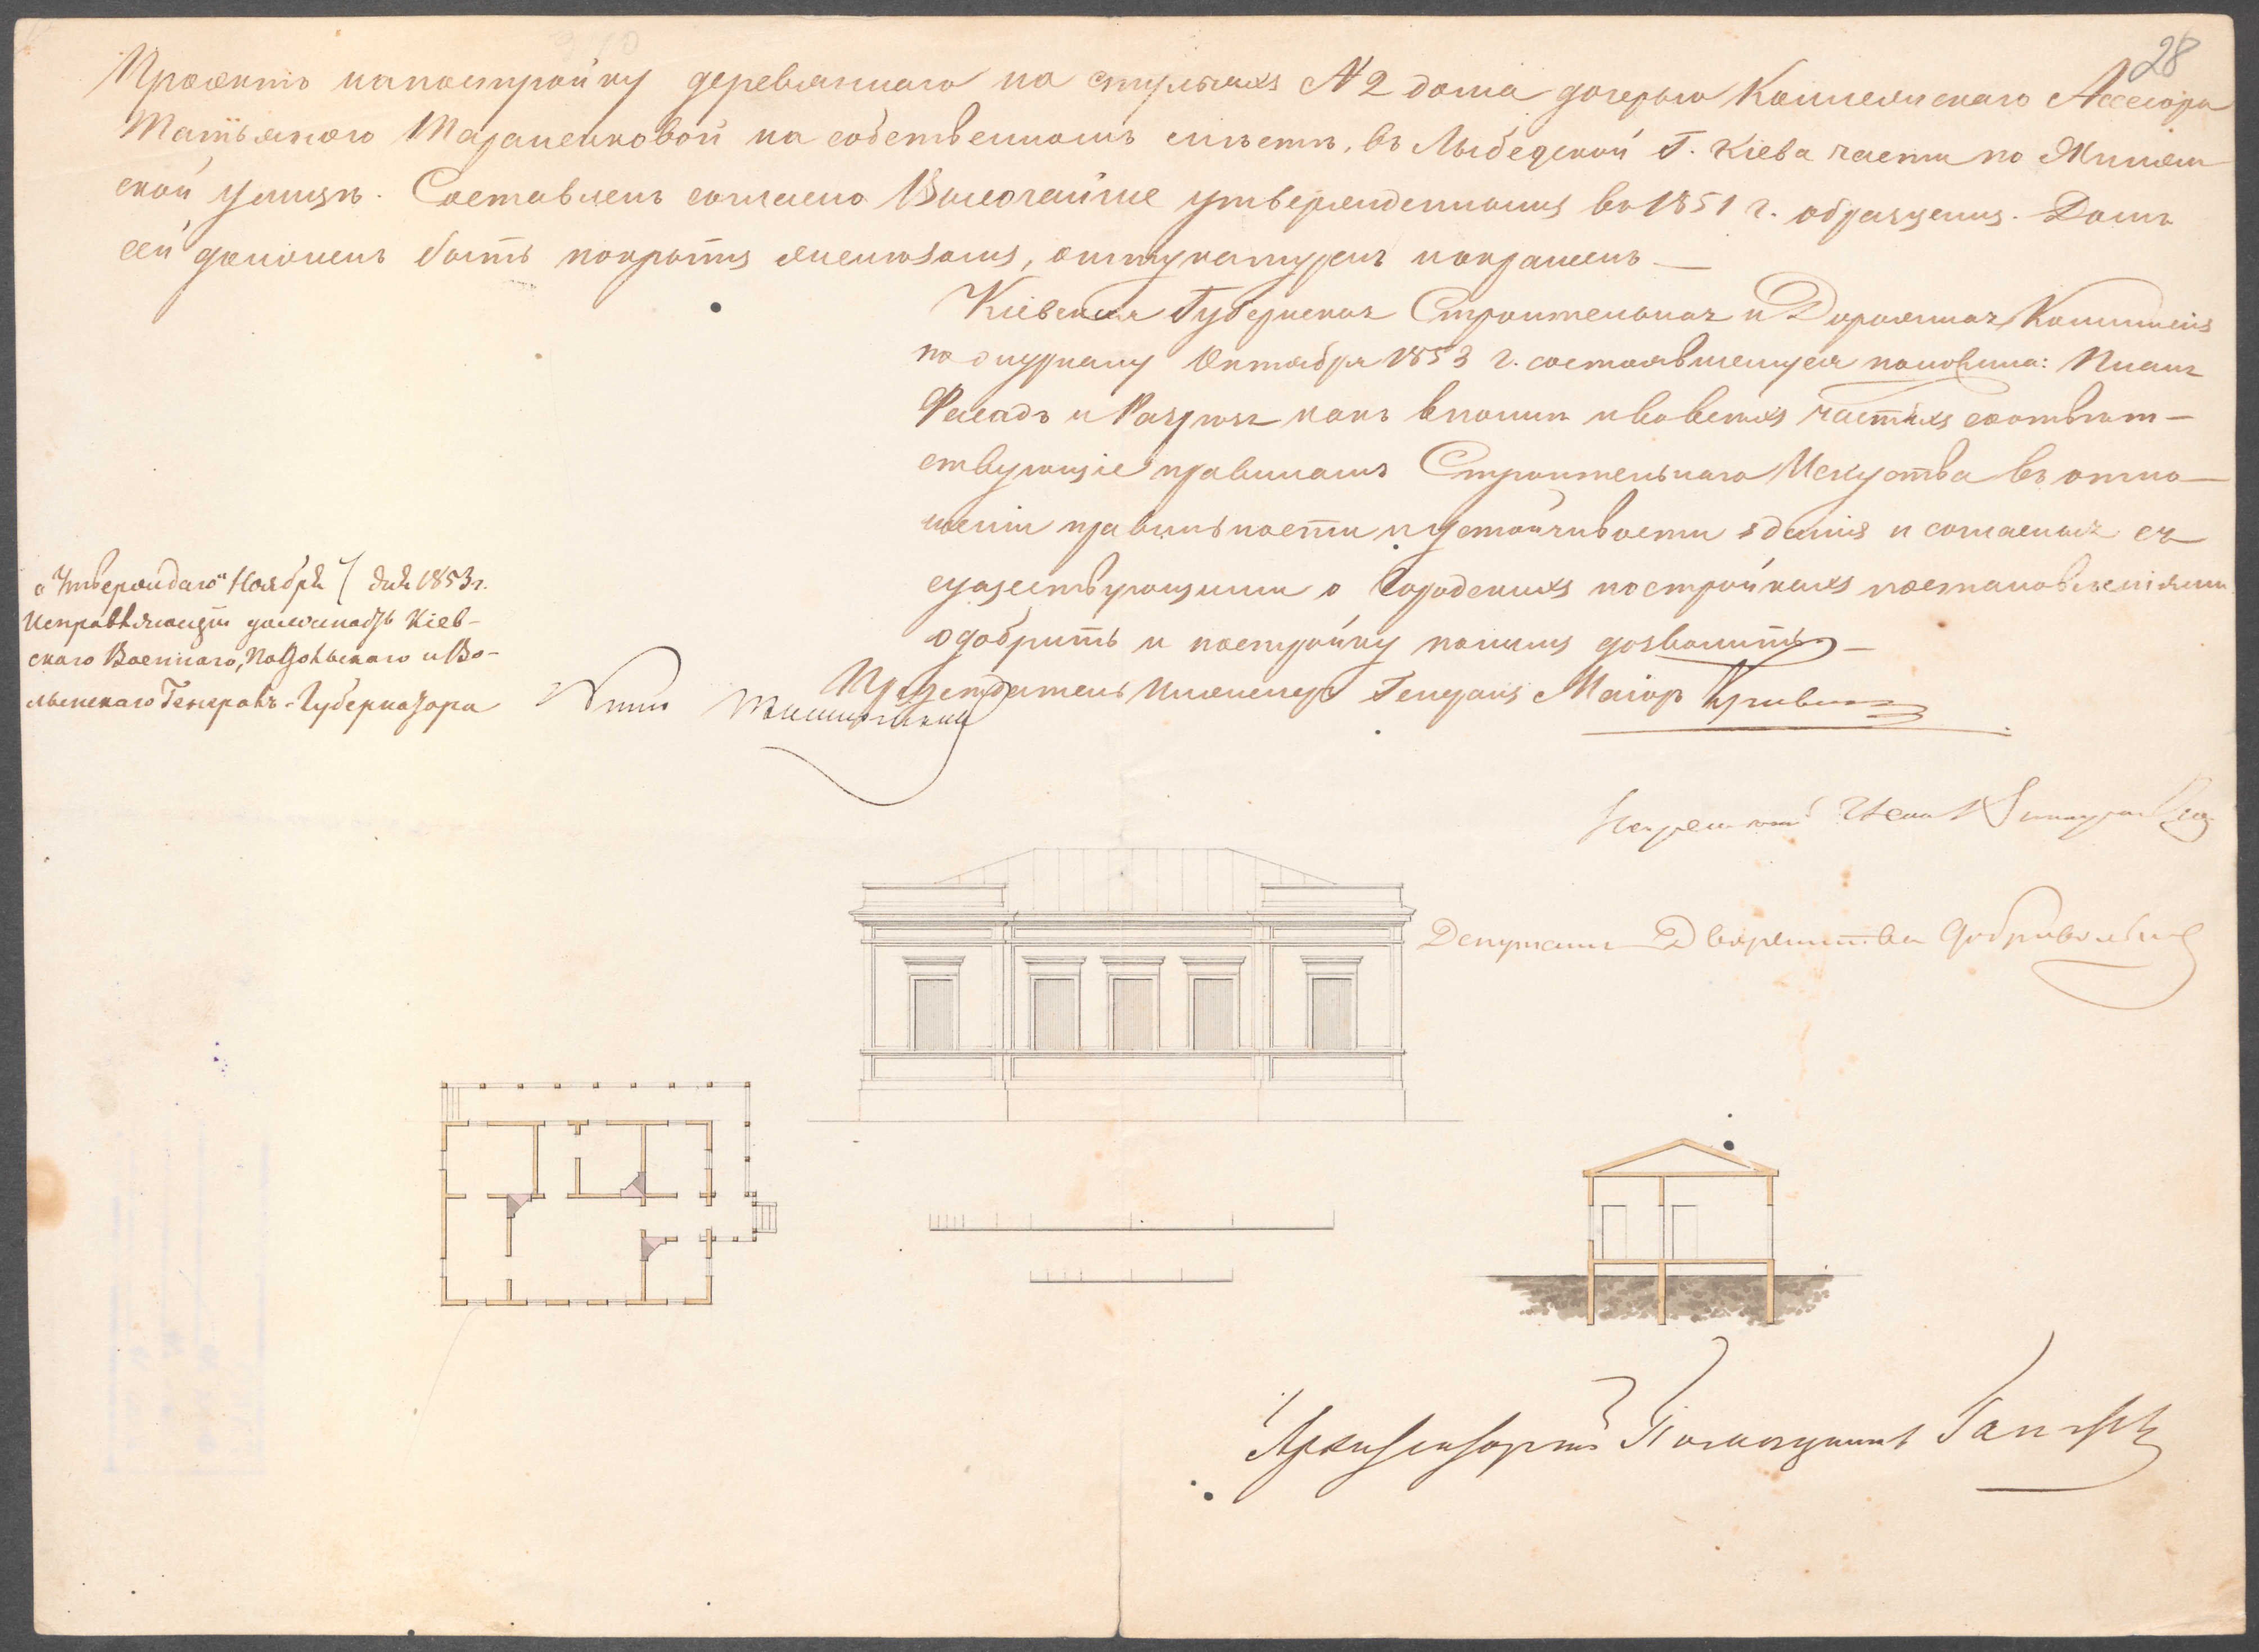 28
Проэктъ на постройку деревяннаго на стульяхъ № 2 дома дочерью Коллежскаго Ассесора
Татьяною Тараненковой на собственномъ мѣстѣ, въ Лыбедской Г. Кіева части по Жилян
ской улицѣ. Составленъ согласно Высочайше утвержденнымъ въ 1851 г. образцемъ. Домъ
сей долженъ быть покрытъ желѣзомъ, оштукатуренъ и окрашенъ
Кіевская Губернская Строительная и Дорожная Коммисія
по журналу Октября 1853 г. состоявшемуся положила: Планъ
Фасадъ и Разрѣзъ какъ вполнѣ и во всѣхъ частяхъ соотвѣт-
ствующіе правиламъ Строительнаго Искуства въ отно-
шеніи правильности и устойчивости зданія и согласныя съ
существующими о Городскихъ постройкахъ постановленіями
одобрить и постройку по нимъ дозволить
„Утверждаю" Ноября дня 1853 г.
Исправляющій должность Кіев-
скаго Военнаго, Подольскаго и Во-
лынскаго Генералъ-Губернатора
Предсѣдатель Инженеръ Генералъ Маіоръ
Депутатъ Дворянства Добровольскій
Архитекторскій Помощникъ